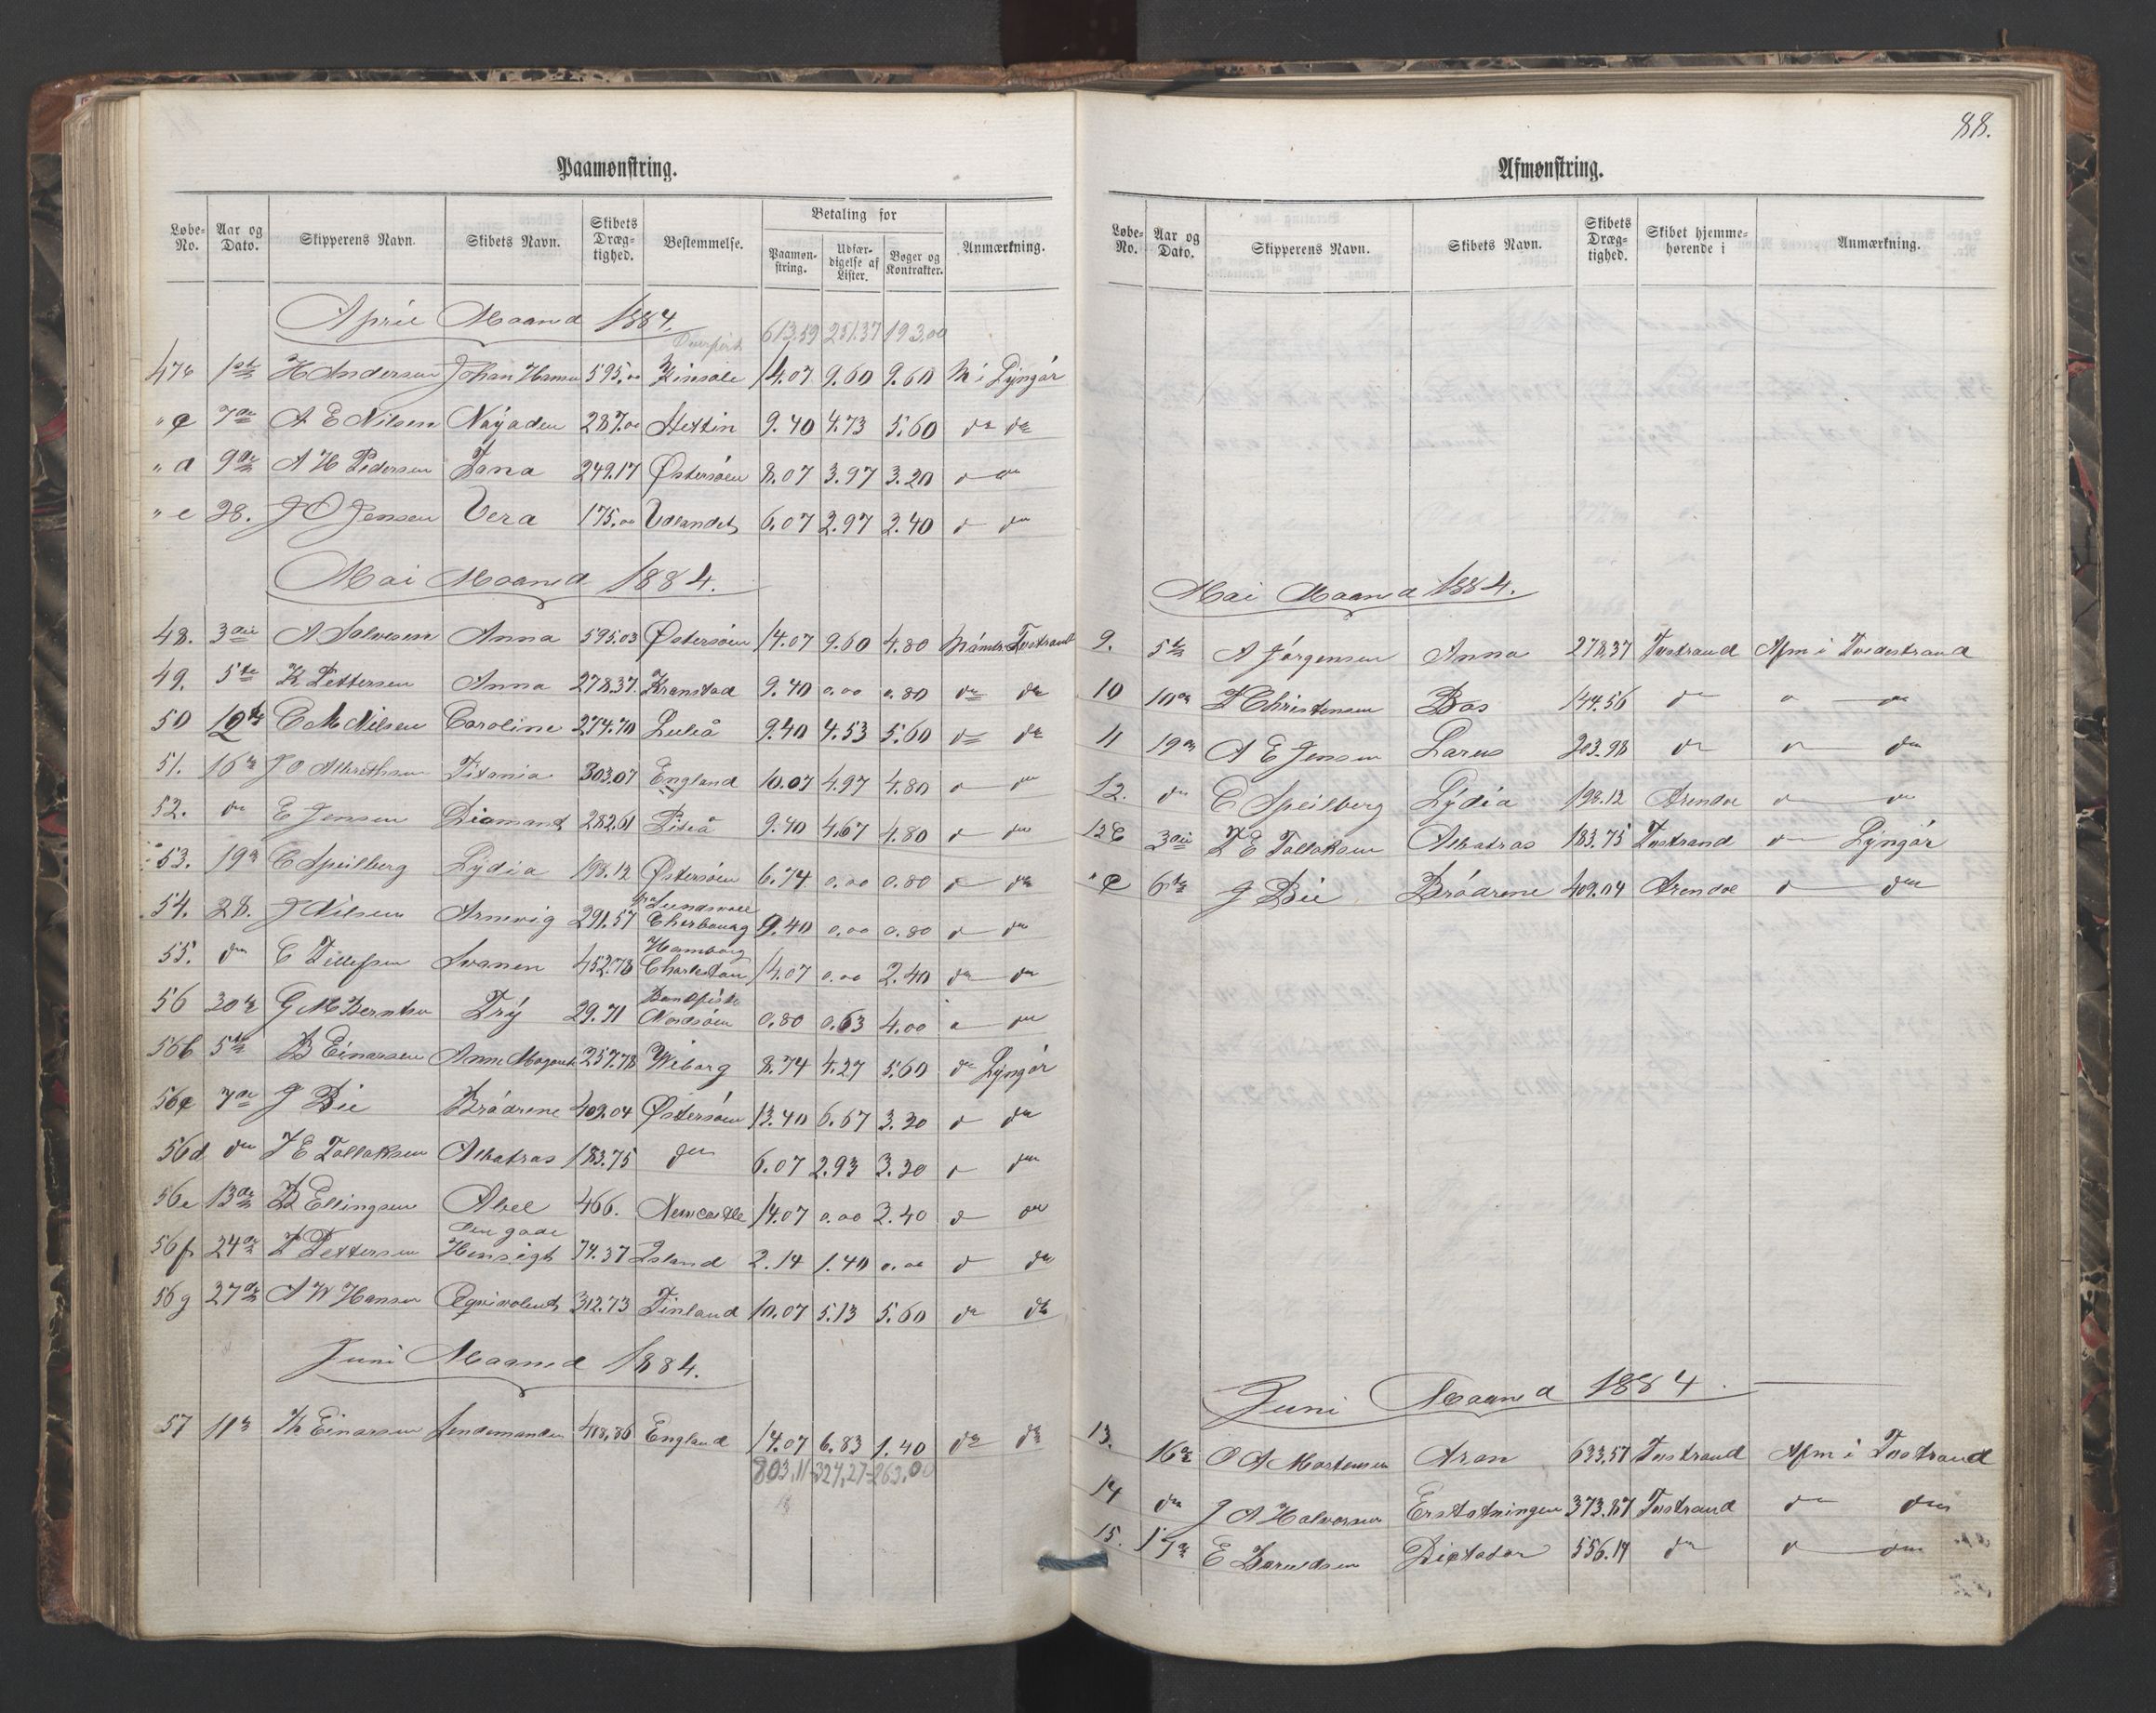 88.
Paamønstring.
Løbe-No. Aar og Dato. Skipperens Navn. Skibets Navn. Skibets Dræg-tighed. Bestemmelse. Betaling for Paamøn-string. Udfær-digelse af Lister. Bøger og Kontrakter. Anmærkning.
April Maaned 1884.
Overført 613.59 251.37 193.00
47b 1ste H Andersen Johan Hansen 595.00 Kinsale 14.07 9.60 9.60 M i Lyngør
" c 7de A E Nilsen Nayaden 287.00 Stettin 9.40 4.73 5.60 do do
" d 9de A H Pedersen Tana 249.17 Østersøen 8.07 3.97 3.20 do
" e 28. J O Jensen Vera 175.00 Udlandet 6.07 2.97 2.40 do
Mai Maaned 1884.
48. 3die A Salvesen Anna 595.03 Østersøen 14.07 9.60 4.80 Tvestrand
49. 5te K Pettersen Anna 278.37. Kronstad 9.40 0.00 0.80 do do
50 12te C M Nilsen Caroline 274.70 Luleå 9.40 4.53 5.60 do do
51. 16de J O Titania 303.07 England 10.07 4.97 4.80 do
52. do E Jensen Diamant 282.61 Piteå 9.40 4.67 4.80 do
53. 19de C Speilberg Lydia 198.12 Østersøen 6.74 0.00 0.80 do
54. 28. J Nilsen Arnevig 291.57 Sundsvall Cherbourg 9.40 0.00 0.80 do
55. do C Tellefsen Svanen 452.78 Hamborg Charleston 14.07 0.00 2.40 do do
56 30te G M Berntsen Try 29.71 Nordsøen 0.80 0.63 4.00 do
56b 5te B Einarsen Anne Magrete 257.78 Wiborg 8.74 4.27 5.60 do Lyngør
56c 7de J Bie Brødrene 409.04 Østersøen 13.40 6.67 3.20 do
56d do T E Tallaksen Albatros 183.75 do 6.07 2.93 3.20 do
56e 13de B Ellingsen Abel 466. Newcastle 14.07 0.00 2.40 do
56f 24de T Pettersen Den gode Hensigt 74.37 Island 2.14 1.40 0.00 do
56g 27de A W Hansen Eqvivalent 312.73 Finland 10.07 5.13 5.60 do do
Juni Maaned 1884.
57 11te Th Einarsen Søndenvinden 418.86 England 14.07 6.83 1.40 do do
803,11 - 327,27 - 263,00
Afmønstring.
Løbe-No. Aar og Dato. Skipperens Navn. Skibets Navn. Skibets Dræg-tighed. Skibet hjemme-hørende i Anmærkning.
Mai Maaned 1884.
9. 5te A Jørgensen Anna 278.37 Tvstrand Afm i Tvedestrand
10 10de T Christensen Bos 144.56 do do
11 19de A E Jensen Larus 203.98 do do
12. do C Speilberg Lydia 198.12 Arendal do
12b 3die T E Tallaksen Albatros 183.75 Tvstrand do Lyngør
" c 6te J Bie Brødrene 409.04 Arendal do
Juni Maaned 1884.
13. 16de O A Mortensen Aron 633.57 Tvstrand Afm i Tvstrand
14 do J A Halvorsen Erstatningen 373.87 Tvstrand do do
15. 17de E Barndsen Dictator 556.14 do do